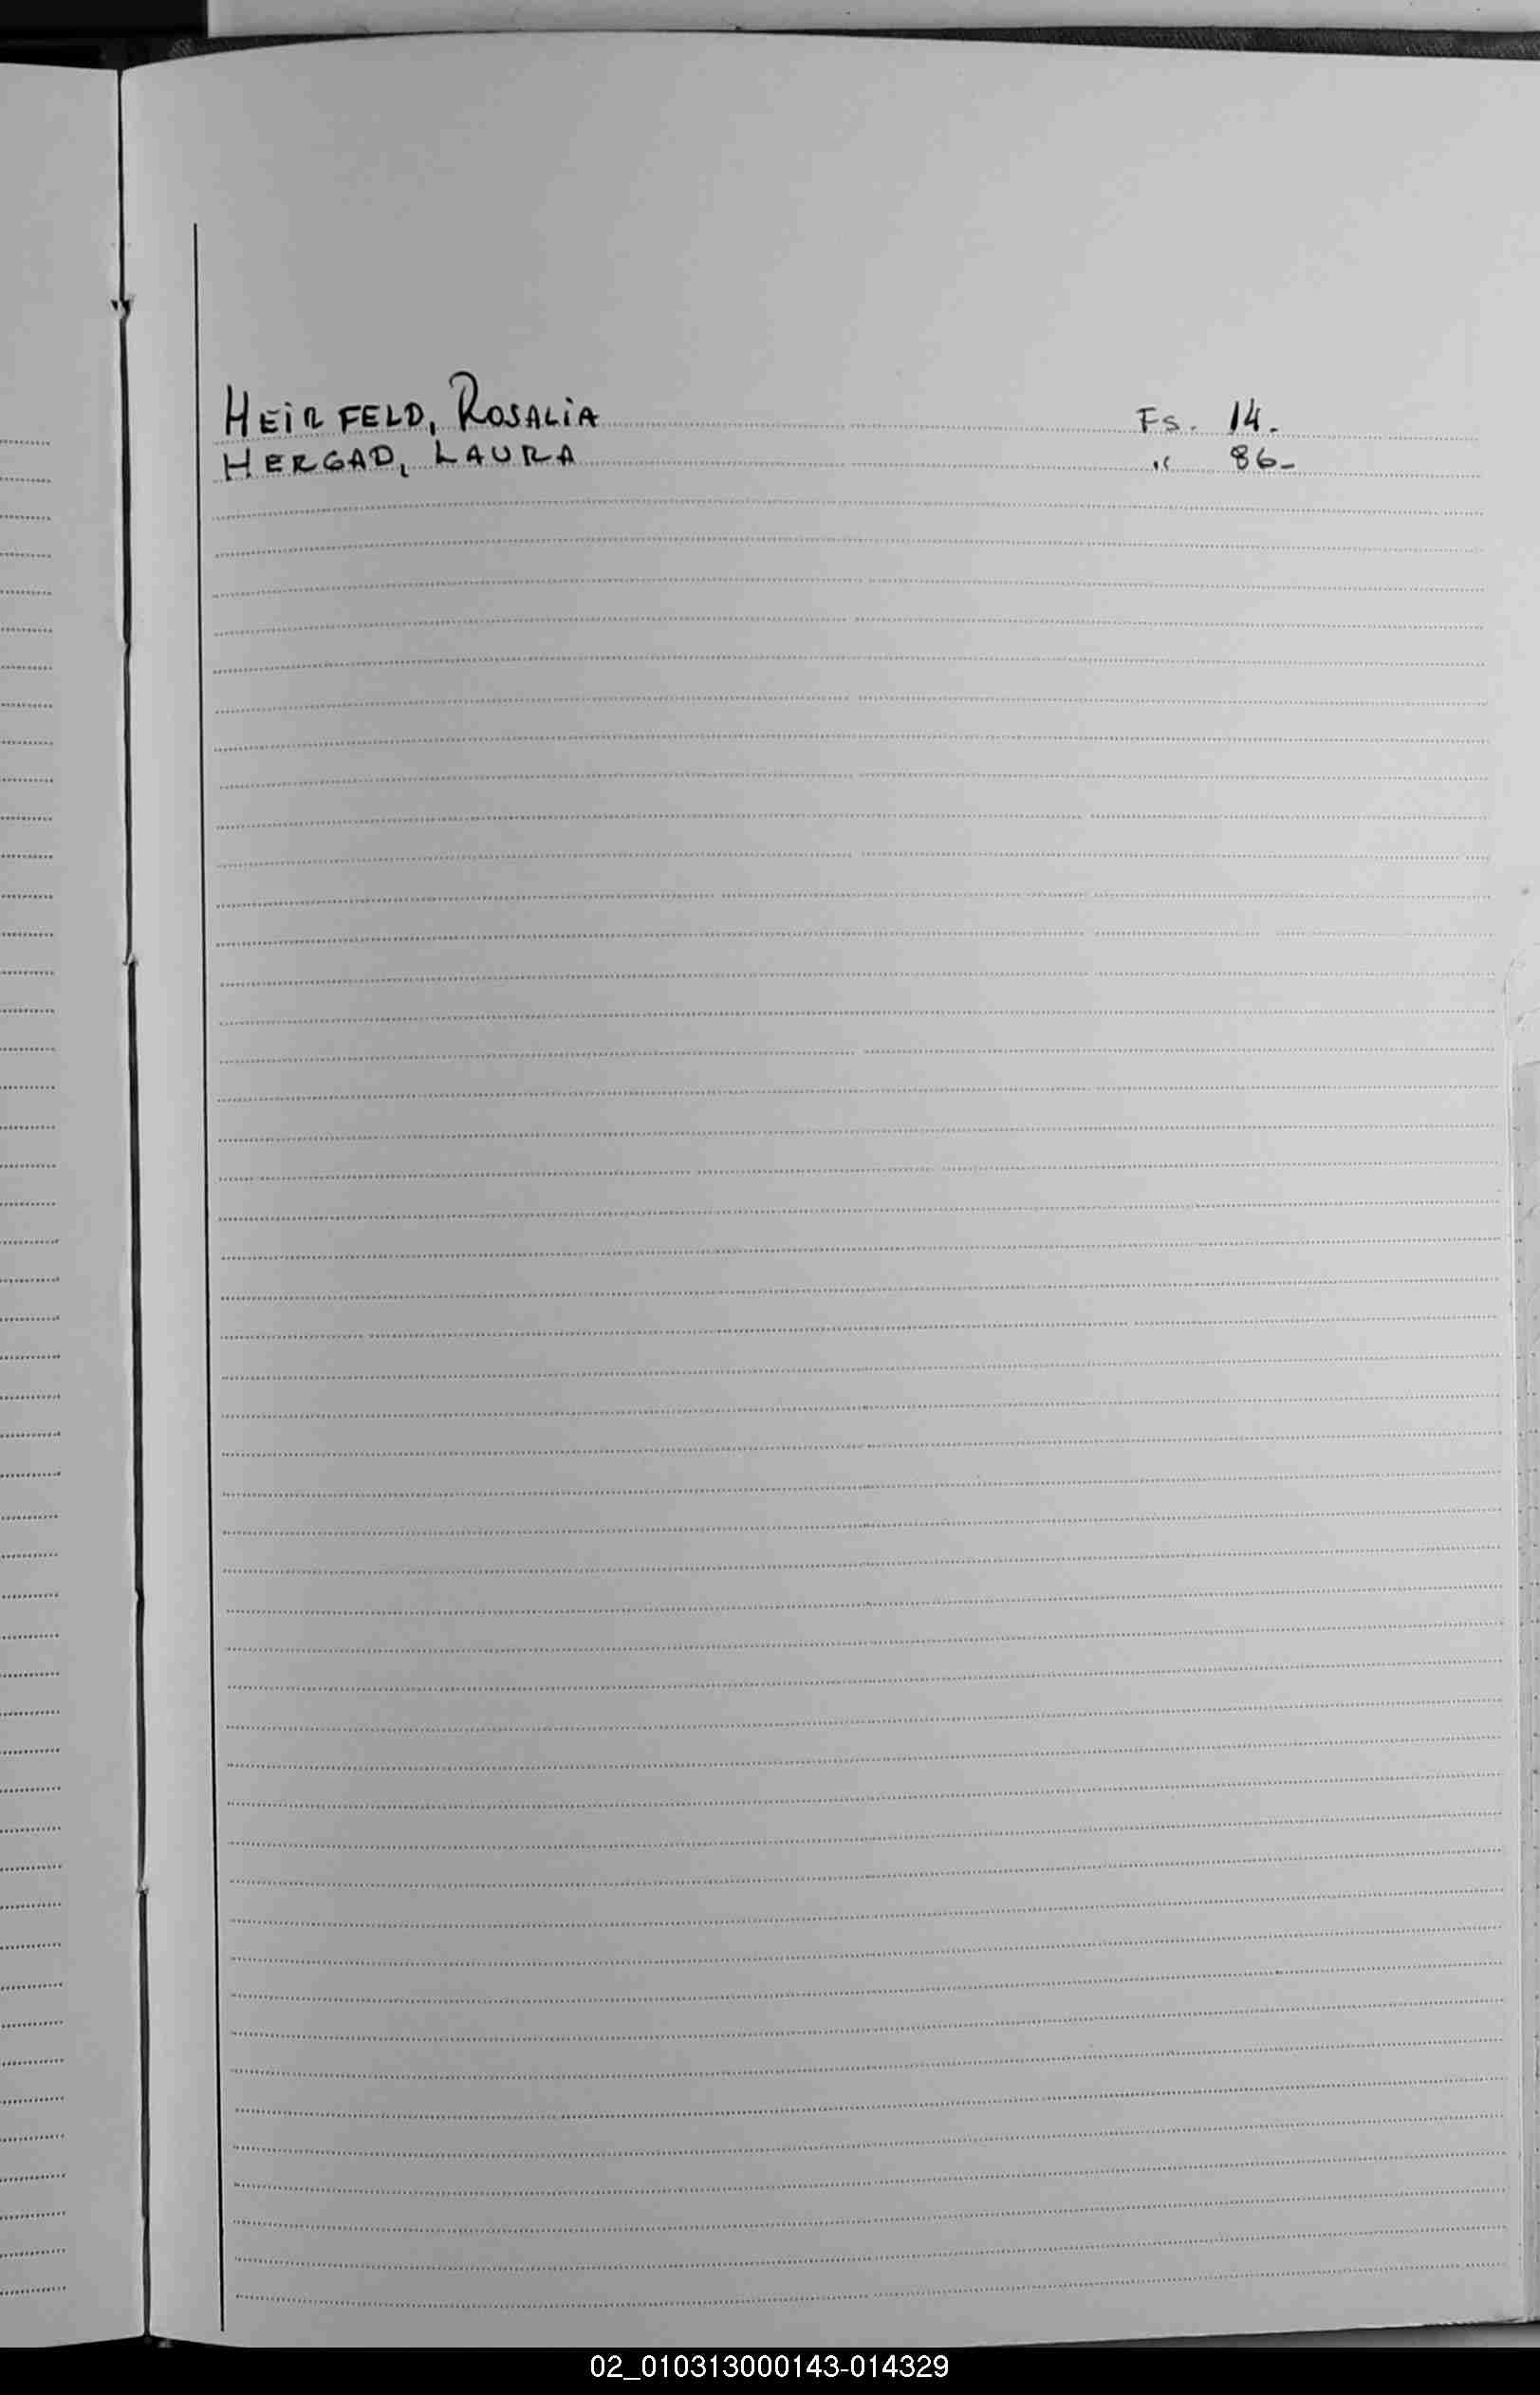 HEIRFELD, ROSALIA Fs. 14.
HERGAD, LAURA " 86-
02_010313000143-014329